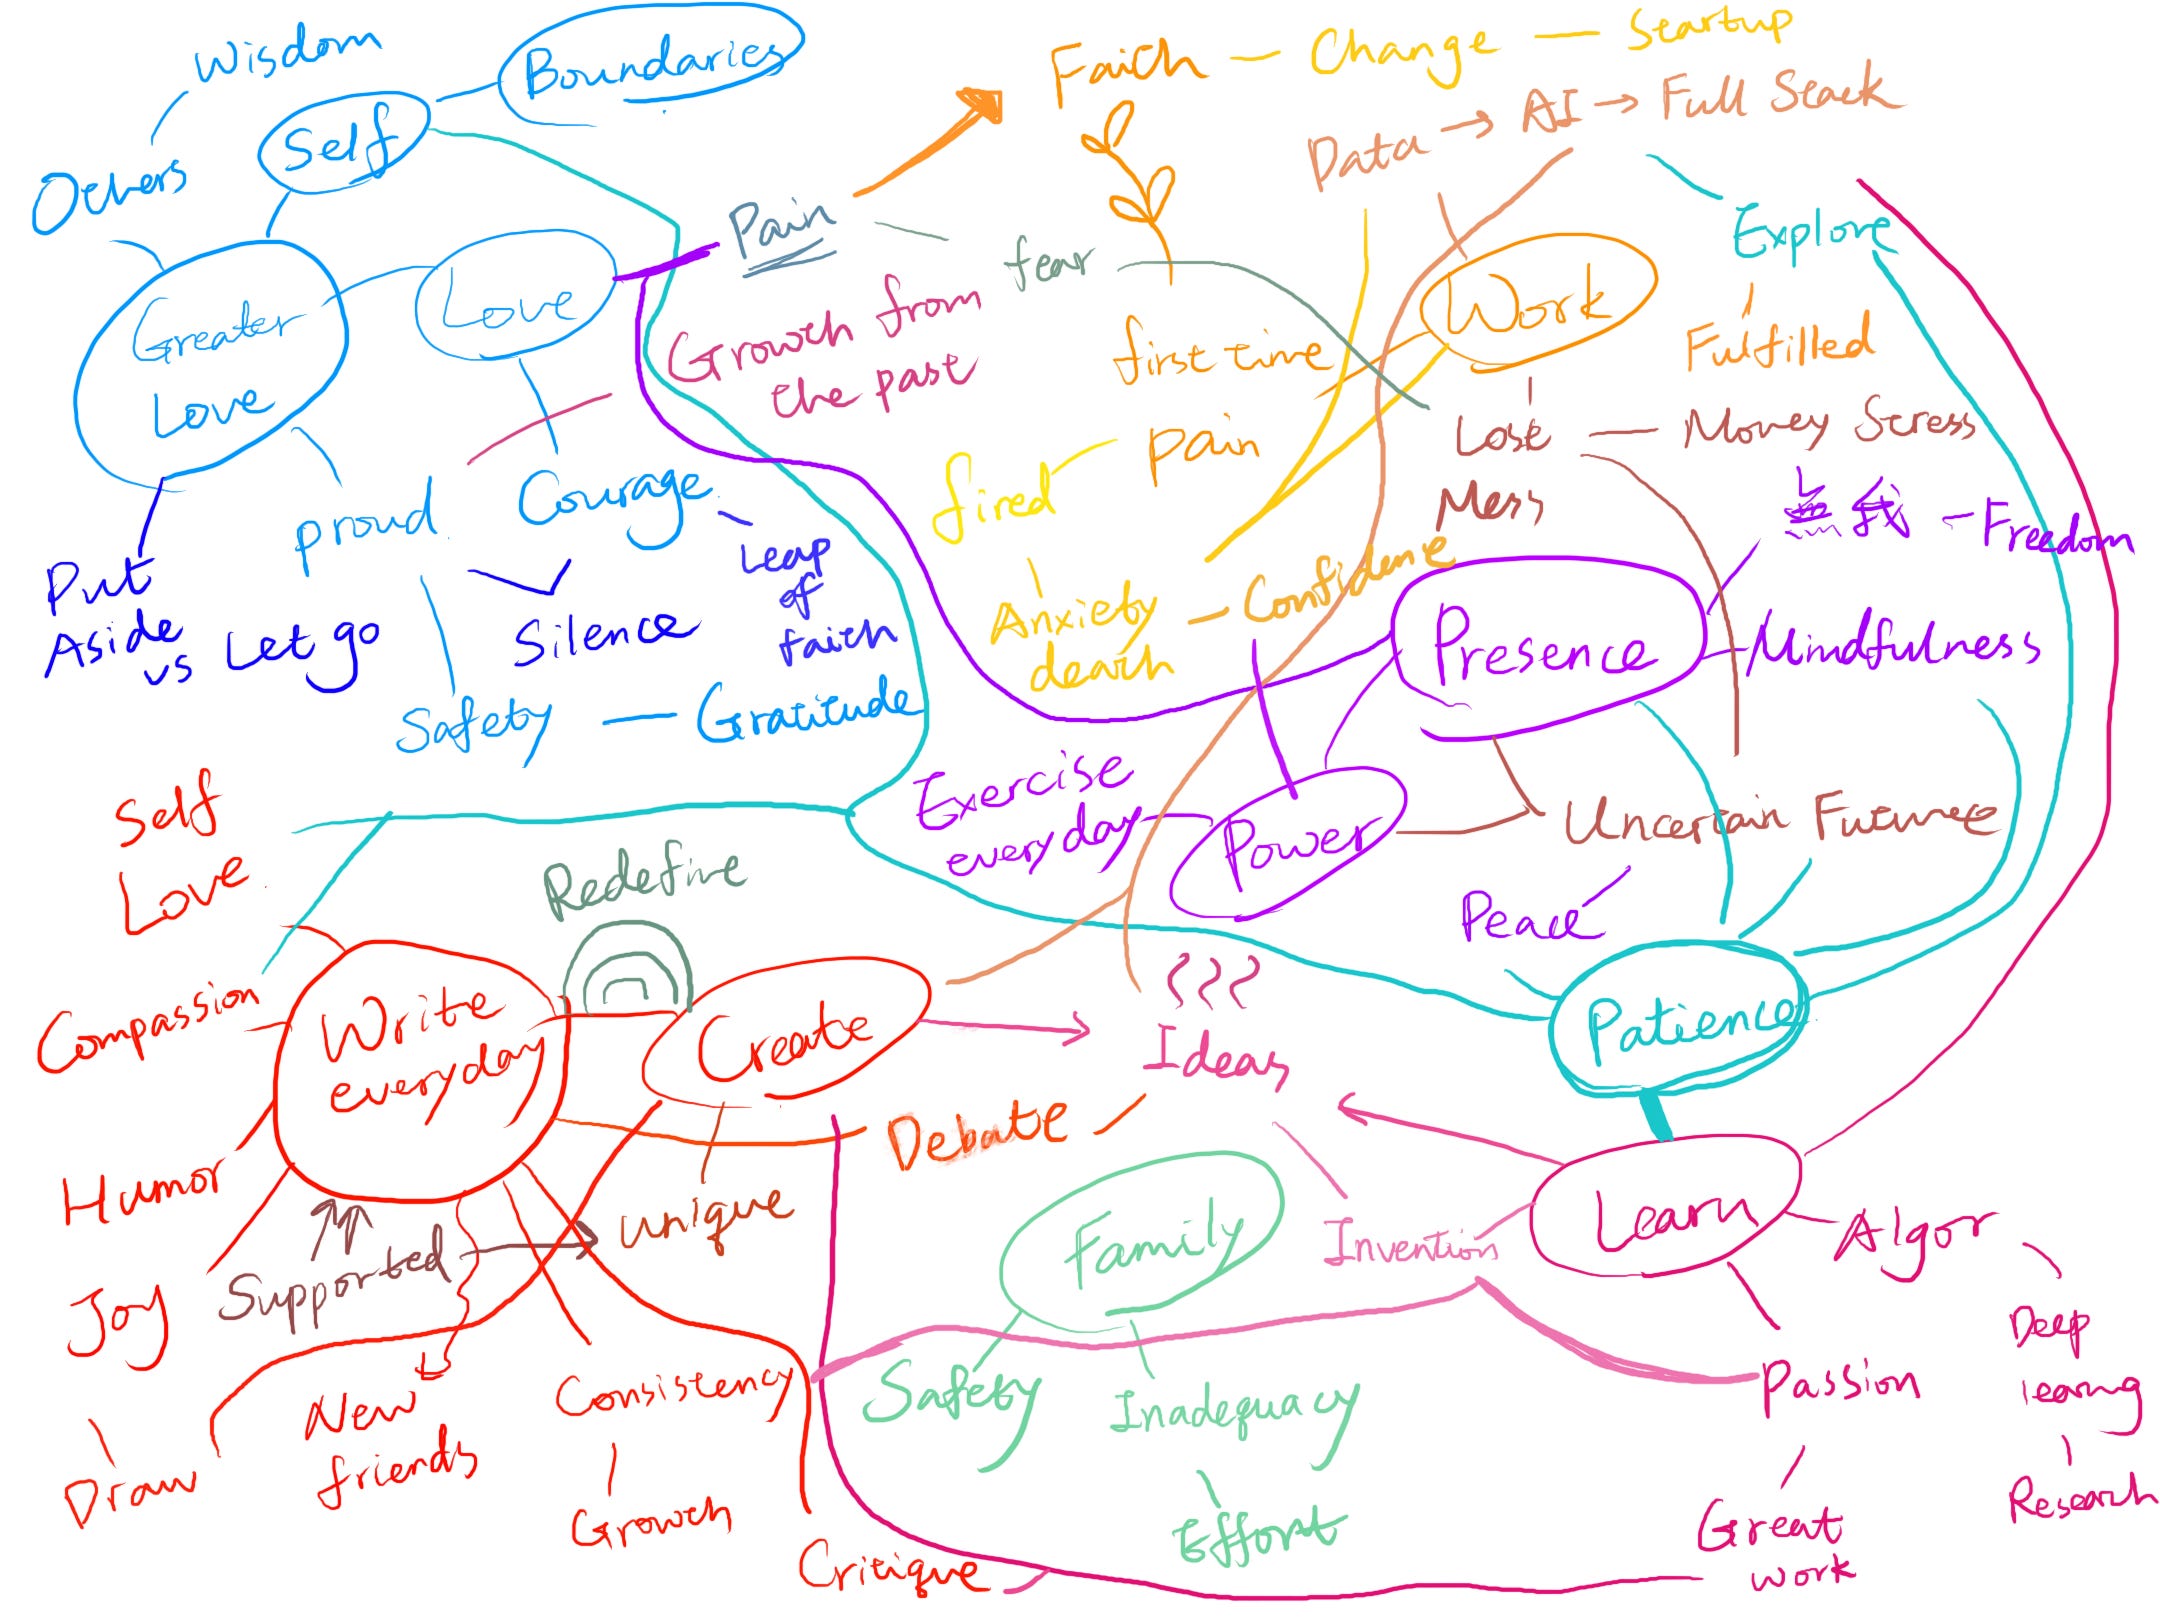 Wisdom
Boundaries
Self
Others
Greater
Love
Love
proud
Courage
Put
Aside
vs Let go
Silence
Leap
of
faith
Safety — Gratitude
Pain
Growth from
the past
fear
Faith — Change — Startup
Data → AI → Full Stack
Explore
Work
Fulfilled
first time
Pain
fired
Lose — Money Stress
Mess
Anxiety — Confidence
death
無我 - Freedom
Presence
Mindfulness
Exercise
everyday
Power
Uncertain Future
Peace
Patience
Self
Love
Redefine
Compassion
Write
everyday
Create
Ideas
Debate
Humor
Supported
unique
Joy
New
friends
Consistency
Draw
Growth
Critique
Family
Safety
Inadequacy
Effort
Invention
Learn
Algor
Deep
learng
Research
Passion
Great
work